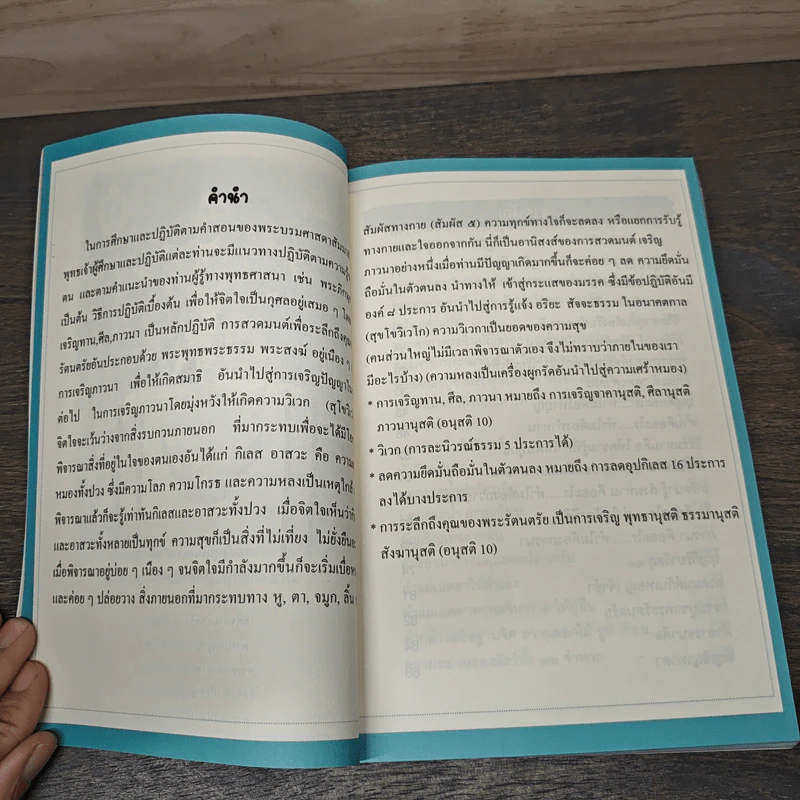 คำนำ
ในการศึกษาและปฏิบัติตามคำสอนของพระบรมศาสดา
พุทธเจ้าผู้ศึกษาและปฏิบัติแต่ละท่านจะมีแนวทางปฏิบัติตาม
ตน และตามคำแนะนำของท่านผู้รู้ทางพุทธศาสนา เช่น
เป็นต้น วิธีการปฏิบัติเบื้องต้น เพื่อให้จิตใจเป็นกุศลอยู่เสมอ ๆ
เจริญทาน,ศีล,ภาวนา เป็นหลักปฏิบัติ การสวดมนต์เพื่อระลึกถึง
รัตนตรัยอันประกอบด้วย พระพุทธพระธรรม พระสงฆ์ อยู่เนือง ๆ
การเจริญภาวนา เพื่อให้เกิดสมาธิ อันนำไปสู่การเจริญปัญญา
ต่อไป ในการเจริญภาวนาโดยมุ่งหวังให้เกิดความวิเวก
จิตใจจะเว้นว่างจากสิ่งรบกวนภายนอก ที่มากระทบเพื่อจะได้มี
พิจารณาสิ่งที่อยู่ในใจของตนเองอันได้แก่ กิเลส อาสวะ คือ
หมองทั้งปวง ซึ่งมีความโลภ ความโกรธ และความหลงเป็นเหตุใกล้
พิจารณาแล้วก็จะรู้เท่าทันกิเลสและอาสวะทั้งปวง เมื่อจิตใจเห็น
และอาสวะทั้งหลายเป็นทุกข์ ความสุขก็เป็นสิ่งที่ไม่เที่ยง
เมื่อพิจารณาอยู่บ่อย ๆ เนือง ๆ จนจิตใจมีกำลังมากขึ้นก็จะเริ่ม
และค่อย ๆ ปล่อยวาง สิ่งภายนอกที่มากระทบทาง หู, ตา, จมูก, ลิ้น
สัมผัสทางกาย (สัมผัส ๕) ความทุกข์ทางใจก็จะลดลง หรือแยกการรับรู้
ทางกายและใจออกจากกัน นี่ก็เป็นอานิสงส์ของการสวดมนต์ เจริญ
ภาวนาอย่างหนึ่งเมื่อท่านมีปัญญาเกิดมากขึ้นก็จะค่อย ๆ ลด ความยึดมั่น
ถือมั่นในตัวตนลง นำทางให้ เข้าสู่กระแสของมรรค ซึ่งมีข้อปฏิบัติอันมี
องค์ ๘ ประการ อันนำไปสู่การรู้แจ้ง อริยะ สัจจะธรรม ในอนาคตกาล
(สุโขวิเวโก) ความวิเวกาเป็นยอดของความสุข
(คนส่วนใหญ่ไม่มีเวลาพิจารณาตัวเอง จึงไม่ทราบว่าภายในของเรา
มีอะไรบ้าง) (ความหลงเป็นเครื่องผูกรัดอันนำไปสู่ความเศร้าหมอง)
* การเจริญทาน, ศีล, ภาวนา หมายถึง การเจริญจาคานุสติ, ศีลานุสติ
ภาวนานุสติ (อนุสติ 10)
* วิเวก (การละนิวรณ์ธรรม 5 ประการได้)
* ลดความยึดมั่นถือมั่นในตัวตนลง หมายถึง การลดอุปกิเลส 16 ประการ
ลงได้บางประการ
* การระลึกถึงคุณของพระรัตนตรัย เป็นการเจริญ พุทธานุสติ ธรรมานุสติ
สังฆานุสติ (อนุสติ 10)